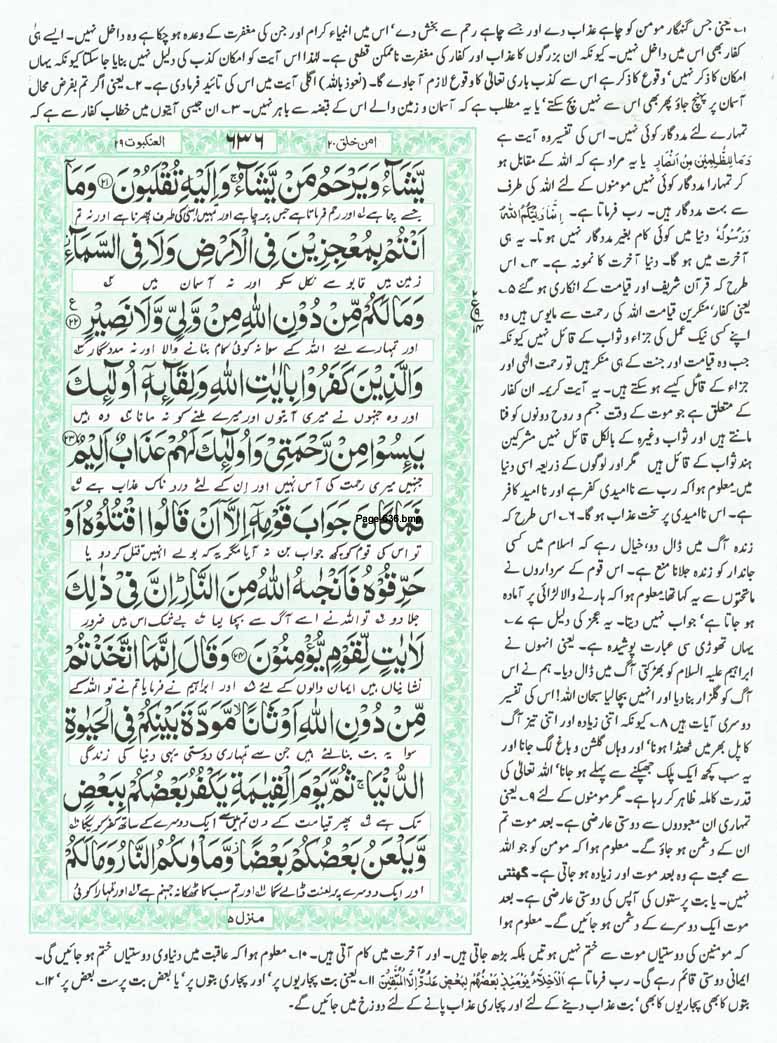 ۱۔ یعنی جس گنہگار مومن کو چاہے عذاب دے اور جسے چاہے رحم سے بخش دے‘ اس میں انبیاء کرام اور جن کی مغفرت کے وعدہ ہو چکا ہے وہ داخل نہیں۔ ایسے ہی
کفار بھی اس میں داخل نہیں۔ کیونکہ ان بزرگوں کا عذاب اور کفار کی مغفرت ناممکن قطعی ہے۔ لہٰذا اس آیت کو امکان کذب کی دلیل نہیں بنایا جا سکتا کیونکہ یہاں
امکان کا ذکر نہیں‘ وقوع کا ذکر ہے اس سے کذب باری تعالیٰ کا وقوع لازم آ جاوے گا۔ (نعوذ باللہ) اگلی آیت میں اس کی تائید فرما دی ہے۔ ۲۔ یعنی اگر تم بفرض محال
آسمان پر پہنچ جاؤ پھر بھی اس سے نہیں بچ سکتے‘ یا یہ مطلب ہے کہ آسمان و زمین والے اس کے قبضہ سے باہر نہیں۔ ۳۔ ان جیسی آیتوں میں خطاب کفار سے ہے کہ
العنكبوت ۲۹
۶۳۶
امن خلق ۲۰
يَّشَآءُ وَيَرْحَمُ مَنْ يَّشَآءُ ۚ وَاِلَيْهِ تُقْلَبُوْنَ ﴿۲۱﴾ وَمَآ
جسے چاہے اور رحم فرماتا ہے جس پر چاہے اور تمہیں اسی کی طرف پھرنا ہے اور نہ تم
اَنْتُمْ بِمُعْجِزِيْنَ فِي الْاَرْضِ وَلَا فِي السَّمَآءِ ۫
زمین میں قابو سے نکل سکو اور نہ آسمان میں
وَمَا لَكُمْ مِّنْ دُوْنِ اللّٰهِ مِنْ وَّلِيٍّ وَّلَا نَصِيْرٍ ﴿۲۲﴾
اور تمہارے لئے اللہ کے سوا نہ کوئی کام بنانے والا اور نہ مددگار
وَالَّذِيْنَ كَفَرُوْا بِاٰيٰتِ اللّٰهِ وَلِقَآئِهٖٓ اُولٰٓئِكَ
اور وہ جنہوں نے میری آیتوں اور میرے ملنے کو نہ مانا وہ ہیں
يَئِسُوْا مِنْ رَّحْمَتِيْ وَاُولٰٓئِكَ لَهُمْ عَذَابٌ اَلِيْمٌ ﴿۲۳﴾
جنہیں میری رحمت کی آس نہیں اور ان کے لئے درد ناک عذاب ہے
فَمَا كَانَ جَوَابَ قَوْمِهٖٓ اِلَّآ اَنْ قَالُوا اقْتُلُوْهُ اَوْ
Page 636.bmp
تو اس کی قوم کو کچھ جواب بن نہ آیا مگر یہ کہ بولے انہیں قتل کر دو یا
حَرِّقُوْهُ فَاَنْجٰىهُ اللّٰهُ مِنَ النَّارِ ؕ اِنَّ فِيْ ذٰلِكَ
جلا دو تو اللہ نے اسے آگ سے بچا لیا بے شک اس میں ضرور
لَاٰيٰتٍ لِّقَوْمٍ يُّؤْمِنُوْنَ ﴿۲۴﴾ وَقَالَ اِنَّمَا اتَّخَذْتُمْ
نشانیاں ہیں ایمان والوں کے لئے اور ابراہیم نے فرمایا تم نے تو اللہ کے
مِّنْ دُوْنِ اللّٰهِ اَوْثَانًا ۙ مَّوَدَّةَ بَيْنِكُمْ فِي الْحَيٰوةِ
سوا یہ بت بنا لئے ہیں جن سے تمہاری دوستی یہی دنیا کی زندگی
الدُّنْيَا ۚ ثُمَّ يَوْمَ الْقِيٰمَةِ يَكْفُرُ بَعْضُكُمْ بِبَعْضٍ
تک ہے پھر قیامت کے دن تم میں ایک دوسرے کے ساتھ کفر کریگا
وَّيَلْعَنُ بَعْضُكُمْ بَعْضًا ۫ وَّمَاْوٰىكُمُ النَّارُ وَمَا لَكُمْ
اور ایک دوسرے پر لعنت ڈالے گا اور تم سب کا ٹھکانہ جہنم ہے اور تمہارا کوئی
منزل ۵
ع
۲
۹
۱۴
تمہارے لئے مددگار کوئی نہیں۔ اس کی تفسیر وہ آیت ہے
وَمَا لِلظّٰلِمِيْنَ مِنْ اَنْصَارٍ یا یہ مراد ہے کہ اللہ کے مقابل ہو
کر تمہارا مددگار کوئی نہیں مومنوں کے لئے اللہ کی طرف
سے بہت مددگار ہیں۔ رب فرماتا ہے۔ اِنَّمَا وَلِيُّكُمُ اللّٰهُ
وَرَسُوْلُهٗ دنیا میں کوئی کام بغیر مددگار نہیں ہوتا۔ یہ ہی
آخرت میں ہو گا۔ دنیا آخرت کا نمونہ ہے۔ ۴۔ اس
طرح کہ قرآن شریف اور قیامت کے انکاری ہو گئے ۵۔
یعنی کفار‘ منکرین قیامت اللہ کی رحمت سے مایوس ہیں وہ
اپنے کسی نیک عمل کی جزاء و ثواب کے قائل نہیں کیونکہ
جب وہ قیامت اور جنت کے ہی منکر ہیں تو رحمت الٰہی اور
جزاء کے قائل کیسے ہو سکتے ہیں۔ یہ آیت کریمہ ان کفار
کے متعلق ہے جو موت کے وقت جسم و روح دونوں کو فنا
مانتے ہیں اور ثواب وغیرہ کے بالکل قائل نہیں مشرکین
ہند ثواب کے قائل ہیں مگر اور لوگوں کے ذریعہ اسی دنیا
میں۔ معلوم ہوا کہ رب سے ناامیدی کفر ہے اور ناامید کافر
ہے۔ اس ناامیدی پر سخت عذاب ہو گا۔ ۶۔ اس طرح کہ
زندہ آگ میں ڈال دو‘ خیال رہے کہ اسلام میں کسی
جاندار کو زندہ جلانا منع ہے۔ اس قوم کے سرداروں نے
ماتحتوں سے یہ کہا تھا‘ معلوم ہوا کہ ہارنے والا لڑائی پر آمادہ
ہو جاتا ہے‘ جواب نہیں دیتا۔ یہ عجز کی دلیل ہے ۷۔
یہاں تھوڑی سی عبارت پوشیدہ ہے۔ یعنی انہوں نے
ابراہیم علیہ السلام کو بھڑکتی آگ میں ڈال دیا۔ ہم نے اس
آگ کو گلزار بنا دیا اور انہیں بچا لیا سبحان اللہ! اس کی تفسیر
دوسری آیات ہیں ۸۔ کیونکہ اتنی زیادہ اور اتنی تیز آگ
کا پل بھر میں ٹھنڈا ہونا‘ اور وہاں گلشن و باغ لگ جانا اور
یہ سب کچھ ایک پلک جھپکنے سے پہلے ہو جانا‘ اللہ تعالیٰ کی
قدرت کاملہ ظاہر کر رہا ہے۔ مگر مومنوں کے لئے ۹۔ یعنی
تمہاری ان معبودوں سے دوستی عارضی ہے۔ بعد موت تم
ان کے دشمن ہو جاؤ گے۔ معلوم ہوا کہ مومن کو جو اللہ
سے محبت ہے وہ بعد موت اور زیادہ ہو جاتی ہے۔ گھٹتی
نہیں۔ یا بت پرستوں کی آپس کی دوستی عارضی ہے۔ بعد
موت ایک دوسرے کے دشمن ہو جائیں گے۔ معلوم ہوا
کہ مومنین کی دوستیاں موت سے ختم نہیں ہوتیں بلکہ بڑھ جاتی ہیں۔ اور آخرت میں کام آتی ہیں۔ ۱۰۔ معلوم ہوا کہ عاقبت میں دنیاوی دوستیاں ختم ہو جائیں گی۔
ایمانی دوستی قائم رہے گی۔ رب فرماتا ہے اَلْاَخِلَّآءُ يَوْمَئِذٍ بَعْضُهُمْ لِبَعْضٍ عَدُوٌّ اِلَّا الْمُتَّقِيْنَ ۱۱۔ یعنی بت پجاریوں پر‘ اور پجاری بتوں پر‘ یا بعض بت پرست بعض پر‘ ۱۲۔
بتوں کا بھی پجاریوں کا بھی‘ بت عذاب دینے کے لئے اور پجاری عذاب پانے کے لئے دوزخ میں جائیں گے۔